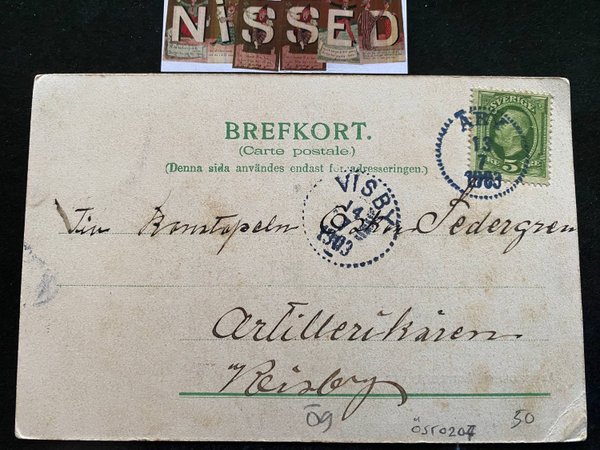 NISSED
BREFKORT.
(Carte postale.)
(Denna sida användes endast för adresseringen.)
SVERIGE
5
13
7
1903
VISBY
14
7
1903
Till Konstapeln Oskar Sedergren
Artillerikåren
Wisby
ÖG
ÖST0204
50